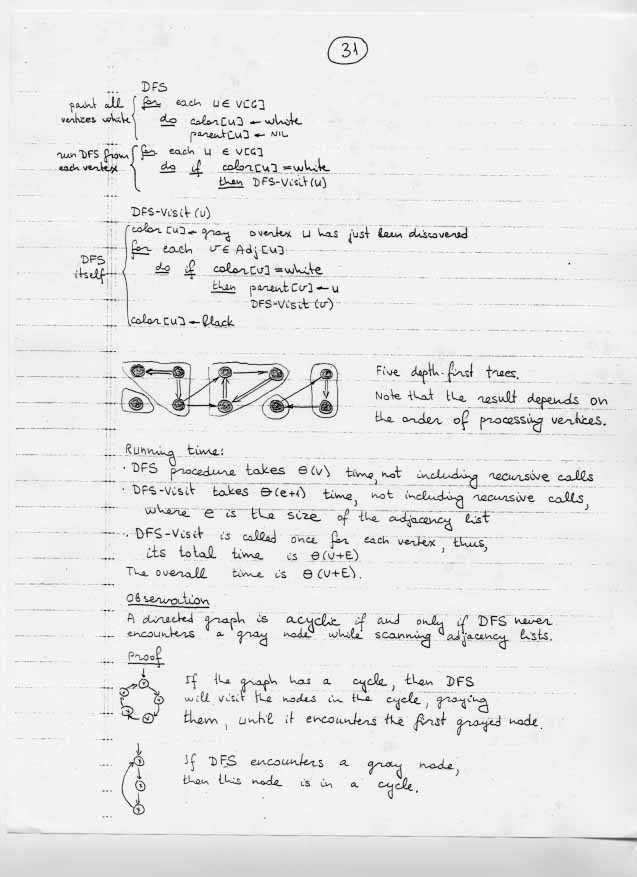 31
DFS
paint all
vertices white
for each u ∈ V[G]
do color[u] ← white
parent[u] ← NIL
run DFS from
each vertex
for each u ∈ V[G]
do if color[u] = white
then DFS-Visit(u)
DFS-Visit(u)
DFS
itself
color[u] ← gray ▹ vertex u has just been discovered
for each v ∈ Adj[u]
do if color[v] = white
then parent[v] ← u
DFS-Visit(v)
color[u] ← black
Five depth-first trees.
Note that the result depends on
the order of processing vertices.
Running time:
· DFS procedure takes Θ(V) time, not including recursive calls
· DFS-Visit takes Θ(e+1) time, not including recursive calls,
where e is the size of the adjacency list
· DFS-Visit is called once for each vertex, thus,
its total time is Θ(V+E)
The overall time is Θ(V+E).
Observation
A directed graph is acyclic if and only if DFS never
encounters a gray node while scanning adjacency lists.
Proof
If the graph has a cycle, then DFS
will visit the nodes in the cycle, graying
them, until it encounters the first grayed node.
If DFS encounters a gray node,
then this node is in a cycle.